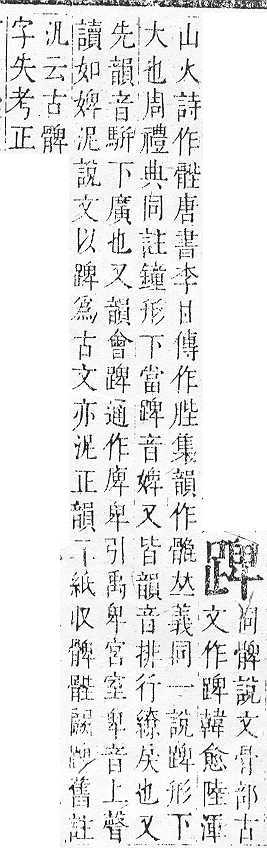 䠋同髀說文骨部古
文作䠋韓愈陸渾
山火詩作䯗唐書李甘傳作䏶集韻作丛義同一說䠋形下
大也周禮典同註鐘形下當䠋音婢又皆韻音排行繚戾也又
先韻音駢下廣也又韻會䠋通作庳卑引禹卑宮室卑音上聲
讀如婢泥說文以䠋為古文亦泥正韻二紙収髀䯗闕䠋舊註
汎云古髀
字失考正